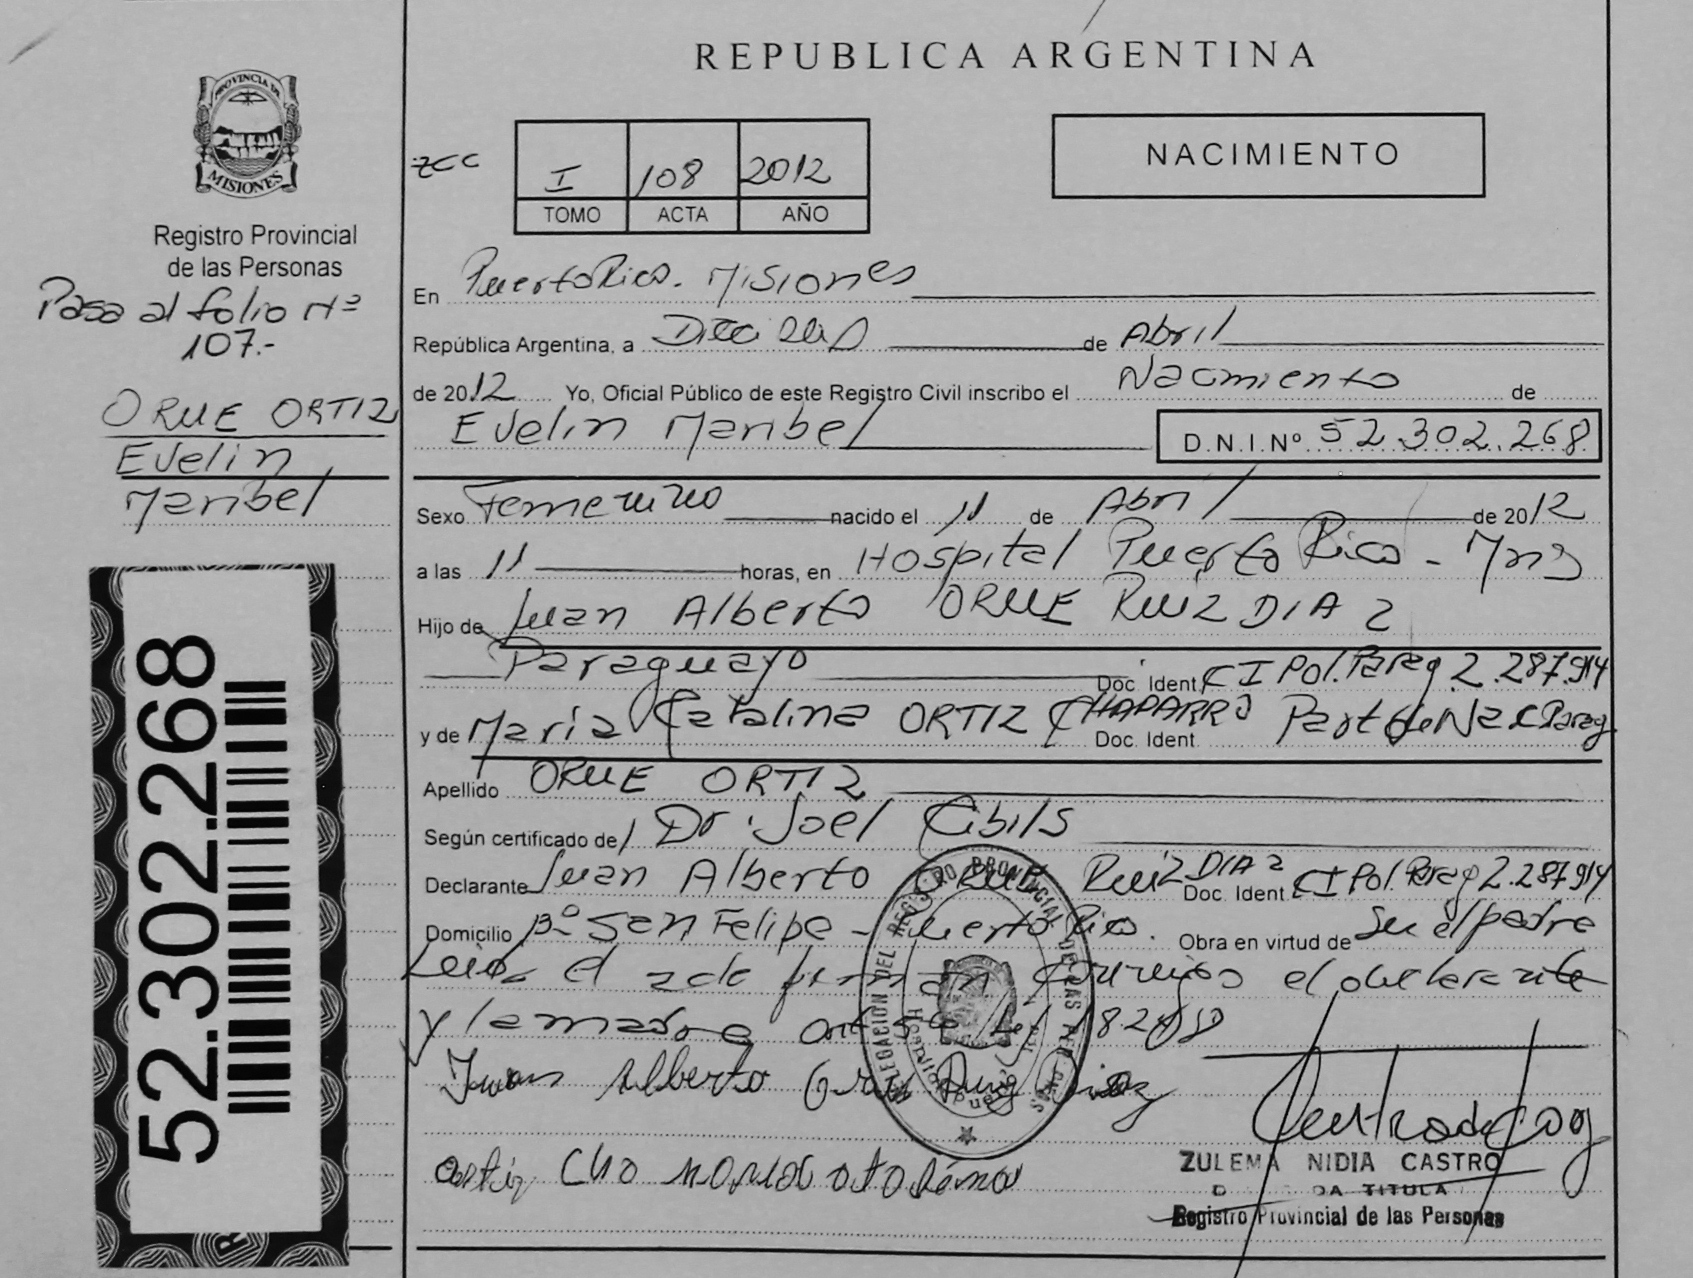 PROVINCIA DE
MISIONES
Registro Provincial
de las Personas
Pasa al folio Nº
107.-
ORUE ORTIZ
Evelin
Maribel
52.302.268
REPUBLICA ARGENTINA
I 108 2012
TOMO ACTA AÑO
NACIMIENTO
En Puerto Rico. Misiones
República Argentina, a Dieciseis de Abril
de 2012 Yo, Oficial Público de este Registro Civil inscribo el Nacimiento de
Evelin Maribel D.N.I.Nº 52.302.268
Sexo Femenino nacido el 11 de Abril de 2012
a las 11 horas, en Hospital Puerto Rico - Mns
Hijo de Juan Alberto ORUE RUIZ DIAZ
Paraguayo Doc. Ident. CI Pol. Parag 2.287.914
y de Maria Catalina ORTIZ CHAPARRO Doc. Ident. Part de Nac Parag
Apellido ORUE ORTIZ
Según certificado de Dr. Joel Cibils
Declarante Juan Alberto ORUE Ruiz DIAZ Doc. Ident. CI Pol. Parag 2.287.914
Domicilio Bº San Felipe - Puerto Rico. Obra en virtud de Ser el padre
Leída el acta firman conmigo el declarante
y la madre
Juan Alberto Orue Ruiz Diaz
DELEGACION DEL REGISTRO PROVINCIAL DE LAS PERSONAS
ZULEMA NIDIA CASTRO
Registro Provincial de las Personas